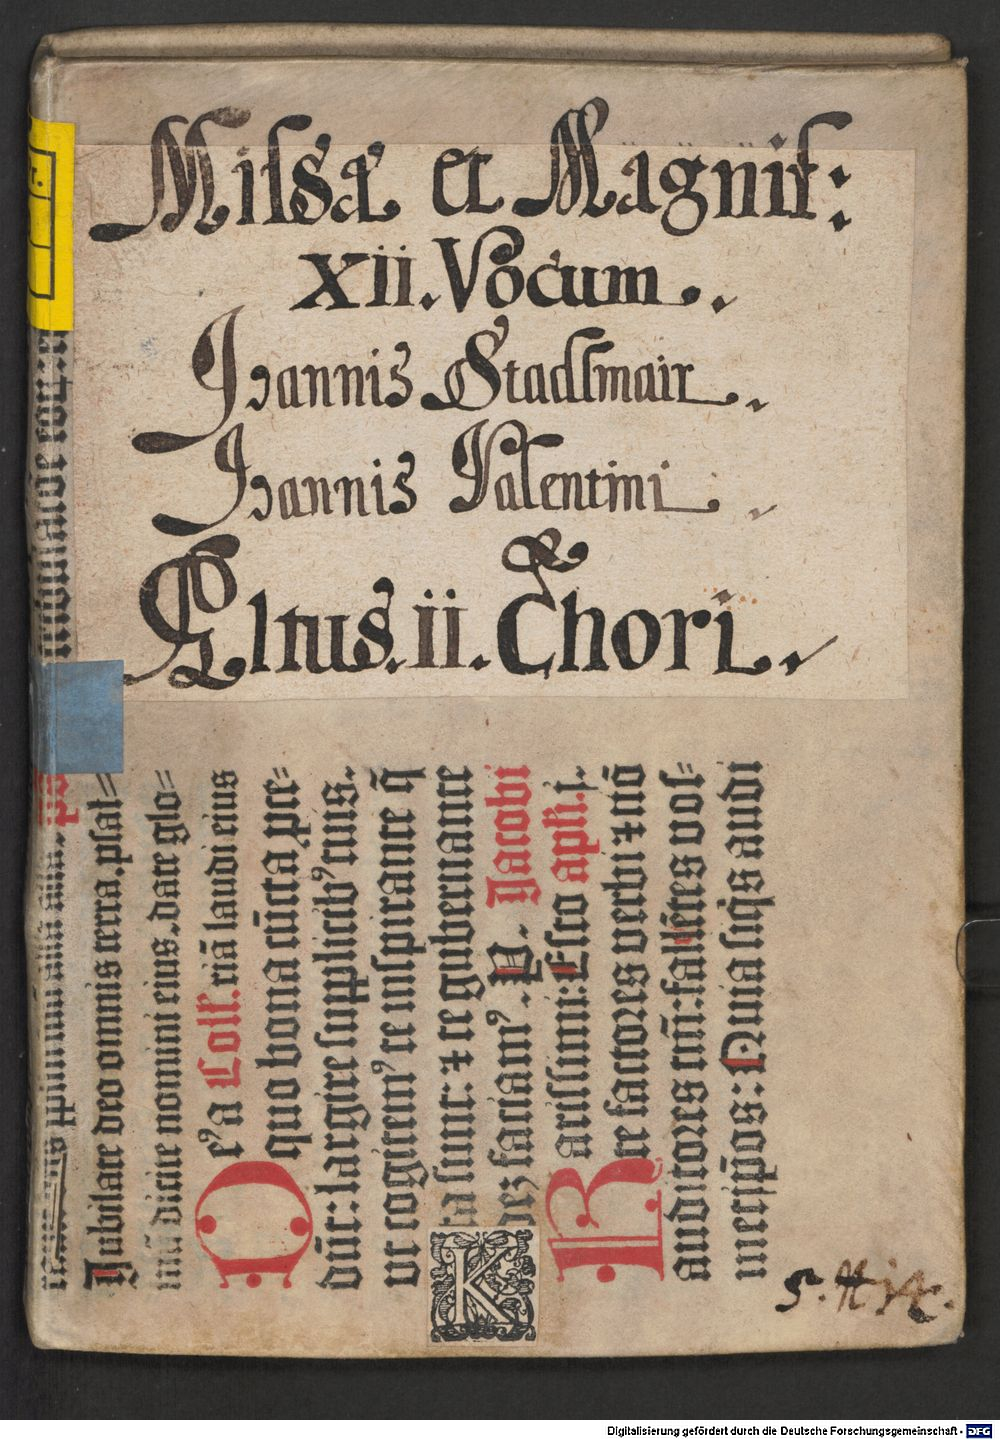 Missæ et Magnif:
XII. Vocum.
Ioannis Stadlmair.
Ioannis Valentini.
Altus. ii. Chori.
Jubilate deo omnis terra. psal=
mū dicite nomini eius. date glo=
riā laudi eius
e' a Coll'.
quo bona cūcta pce=
dūt: largire supplicib' tuis.
ut cogitem' te inspirante q̄
ta sunt: ⁊ te gubernante
Jacobi
apli. j.
arissimi: Esto
te factores verbi ⁊ nō
auditores tm̄: fallētes vos=
metip̄os: Quia siq̄s audi
K
Digitalisierung gefördert durch die Deutsche Forschungsgemeinschaft - DFG